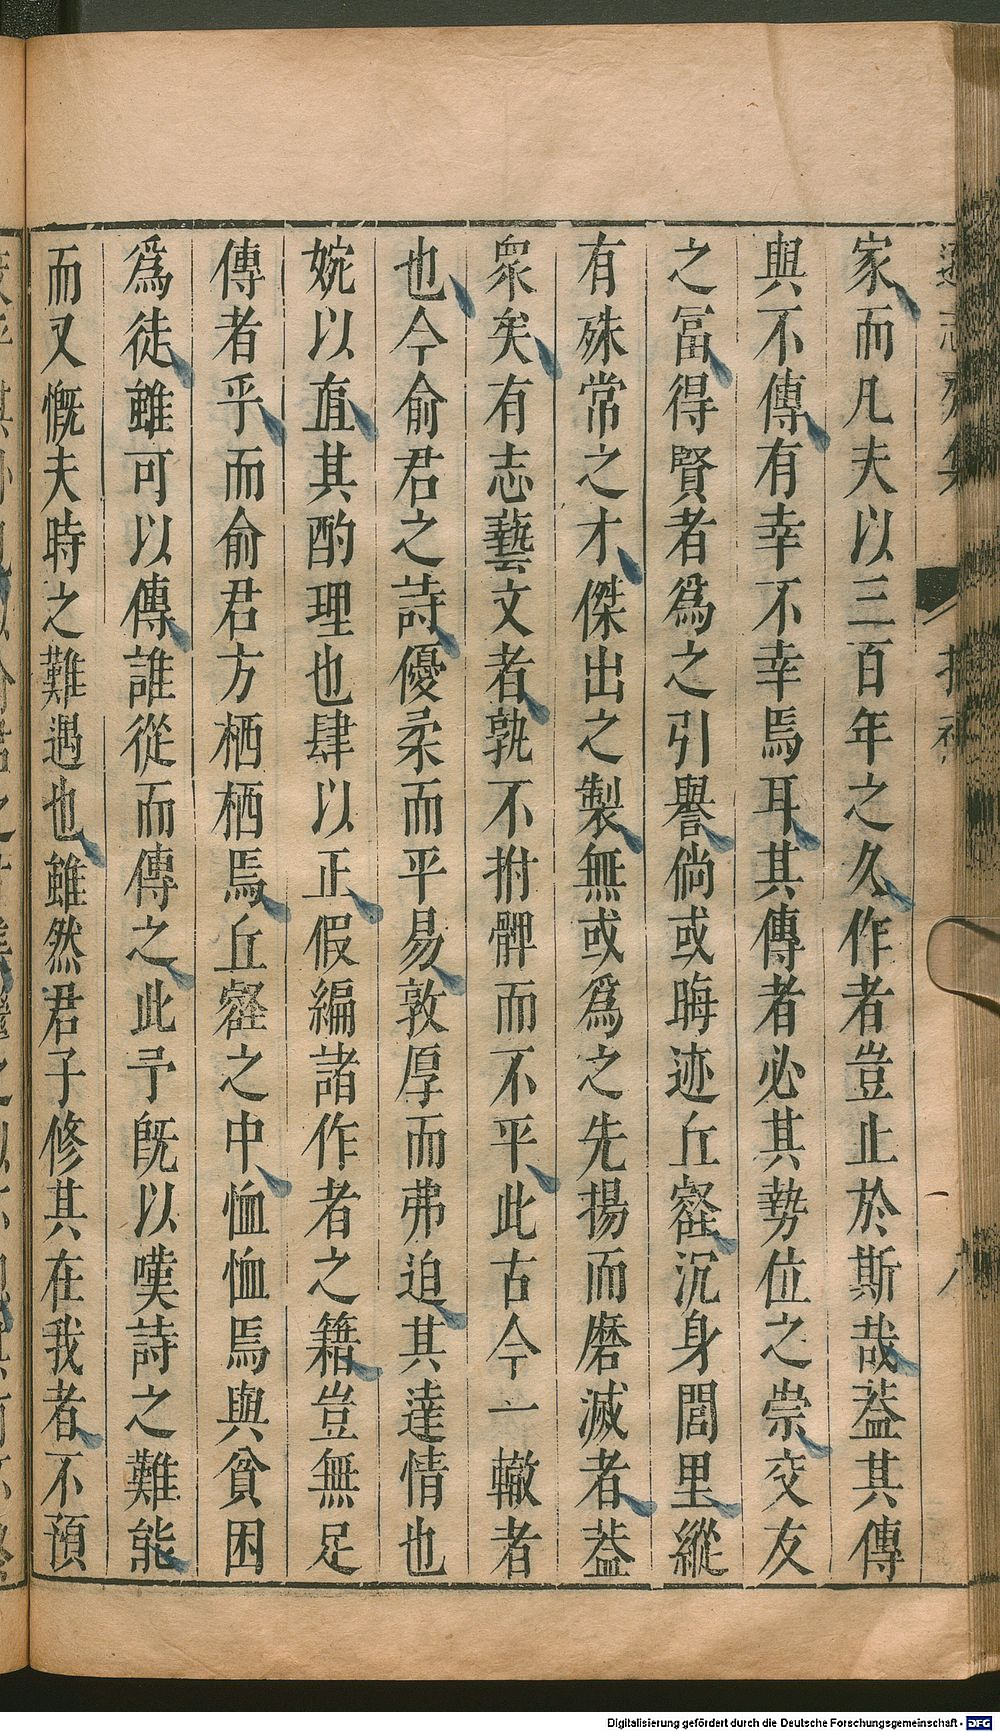 家而凡夫以三百年之久作者豈止於斯哉葢其傳
與不傳有幸不幸焉耳其傳者必其勢位之崇交友
之冨得賢者爲之引譽倘或晦迹丘壑沉身閭里縱
有殊常之才傑出之製無或爲之先揚而磨滅者葢
衆矣有志藝文者孰不拊髀而不平此古今一轍者
也今俞君之詩優柔而平易敦厚而弗迫其達情也
婉以直其酌理也肆以正假編諸作者之籍豈無足
傳者乎而俞君方栖栖焉丘壑之中恤恤焉與貧困
爲徒雖可以傳誰從而傳之此予旣以嘆詩之難能
而又慨夫時之難遇也雖然君子修其在我者不預
Digitalisierung gefördert durch die Deutsche Forschungsgemeinschaft - DFG